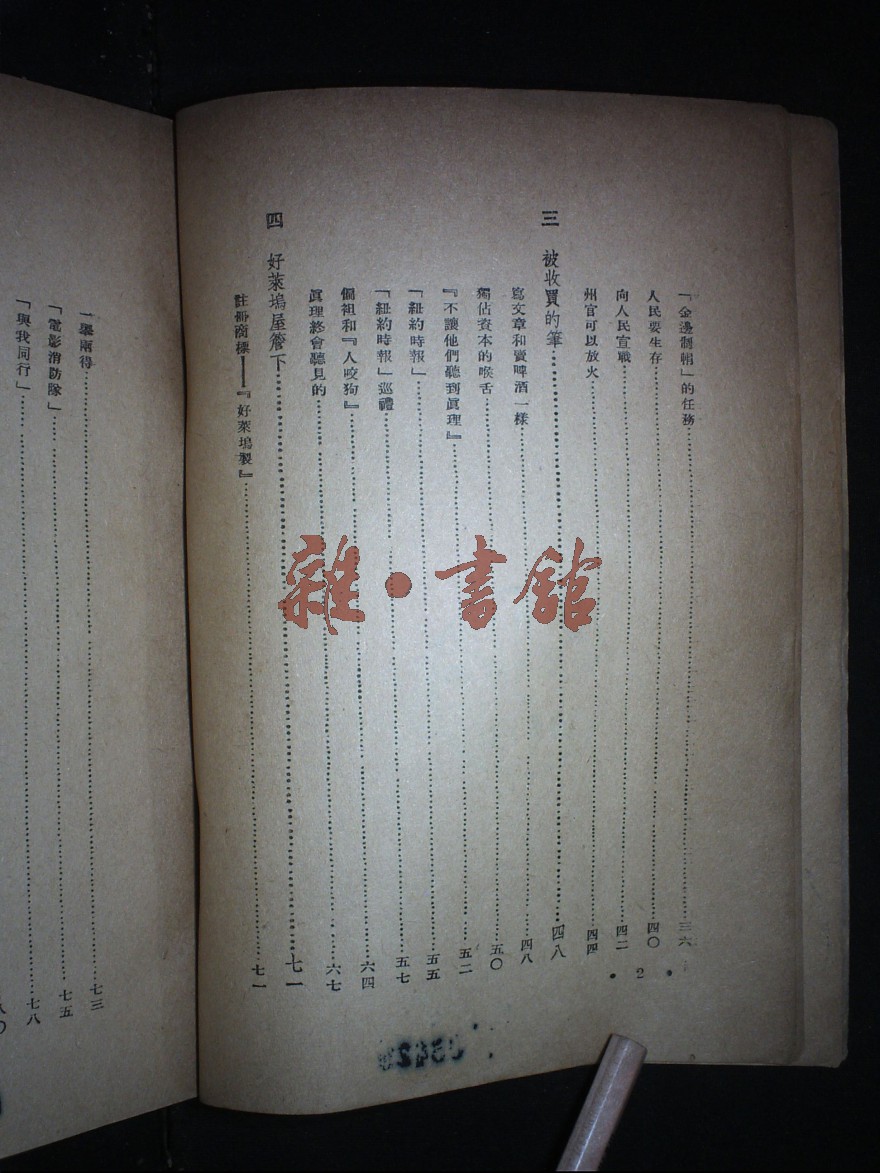 「金邊制帽」的任務……三六
人民要生存……四〇
向人民宣戰……四二
州官可以放火……四四
三 被收買的筆……四八
寫文章和賣啤酒一樣……四八
獨佔資本的喉舌……五〇
『不讓他們聽到眞理』……五二
「紐約時報」……五五
「紐約時報」巡禮……五七
偏袒和『人咬狗』……六四
眞理終會聽見的……六七
四 好萊塢屋簷下……七一
註冊商標——『好萊塢製』……七一
• 2 •
一舉兩得……七三
「電影消防隊」……七五
「與我同行」……七八
八〇
雜•書館